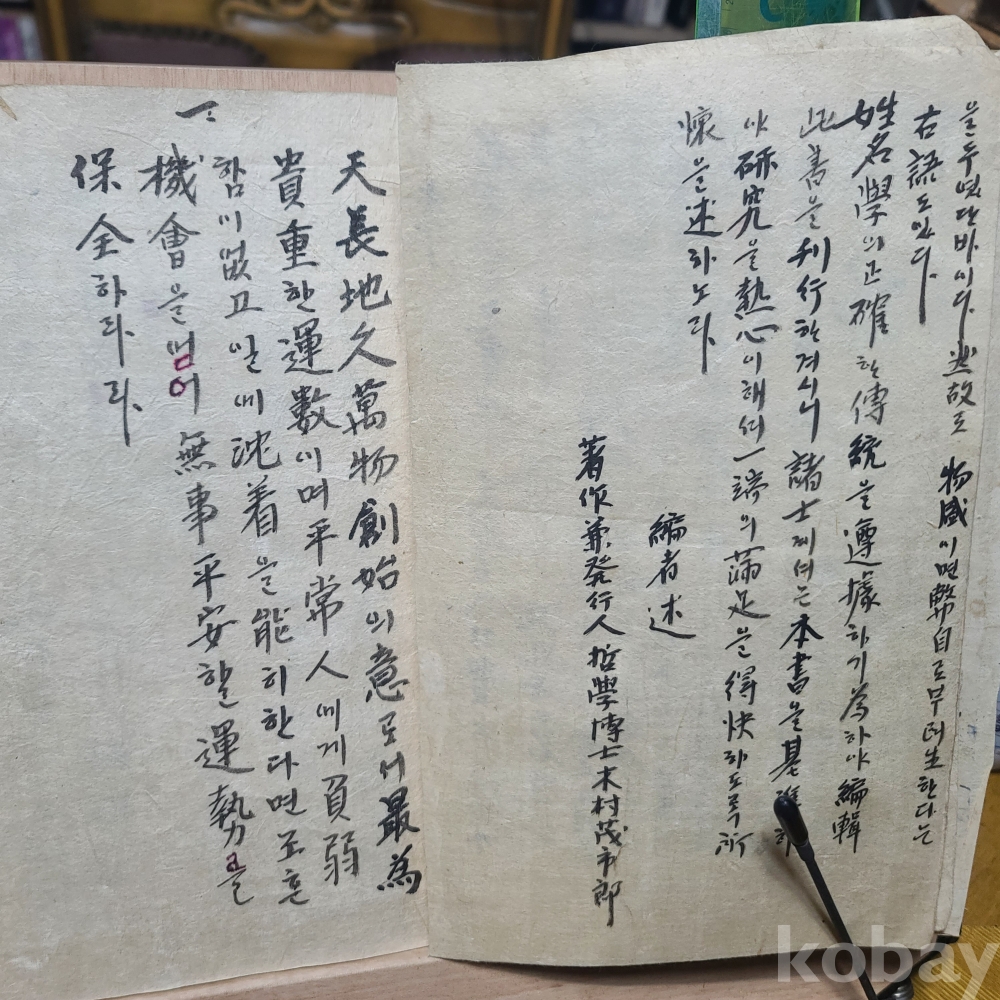 을두엇단바이다 然故로 物盛이면弊自로부터生한다는
右語도잇다
姓名學의正確한傳統을遵據하기爲하야編輯
此書을刊行한거시니 諸士께서는本書을基礎하
야硏究을熱心이해셔一讀의滿足을得快하도록所
懷을述하노라
編者述
著作兼發行人哲學博士木村茂市郎
一
天長地久萬物創始의意로서最爲
貴重한運數이며平常人에게負弱
함이없고일에沈着을能히한다면조흔
機會을넘어 無事平安할運勢를
保全하리라
kobay